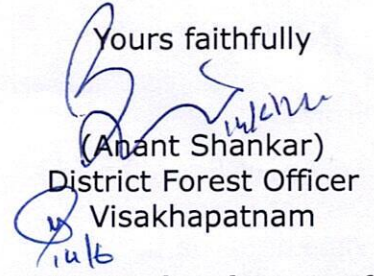 Yours faithfully
(Anant Shankar)
District Forest Officer
Visakhapatnam
14/6